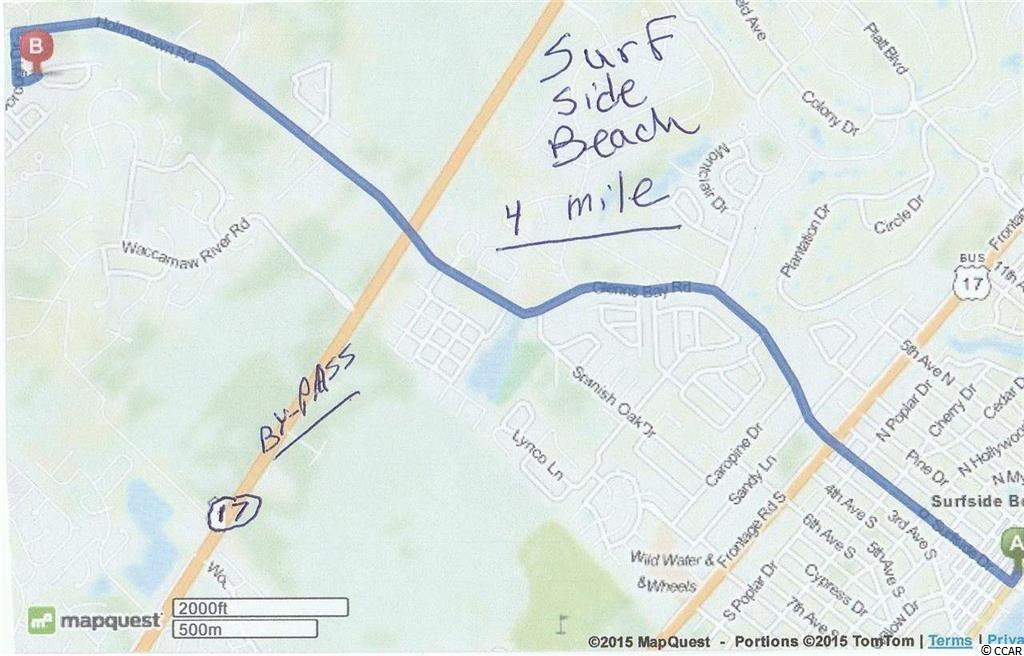 Holmestown Rd
B
Surf
Side
Beach
4 mile
Platt Blvd
Colony Dr
Montclair Dr
Circle Dr
Plantation Dr
Waccamaw River Rd
Glenns Bay Rd
BUS
17
11th A
5th Ave N
By-PASS
Spanish Oak Dr
N Poplar Dr
Cherry Dr
Cedar D
Lynco Ln
Caropine Dr
Sandy Ln
Pine Dr
N Hollywoo
N My
Surfside Be
17
4th Ave S
3rd Ave S
6th Ave S
5th Ave S
A
Frontage Rd S
Wild Water &
&Wheels
S Poplar Dr
Cypress Dr
7th Ave S
mapquest
2000ft
500m
©2015 MapQuest - Portions ©2015 TomTom | Terms | Priva
© CCAR